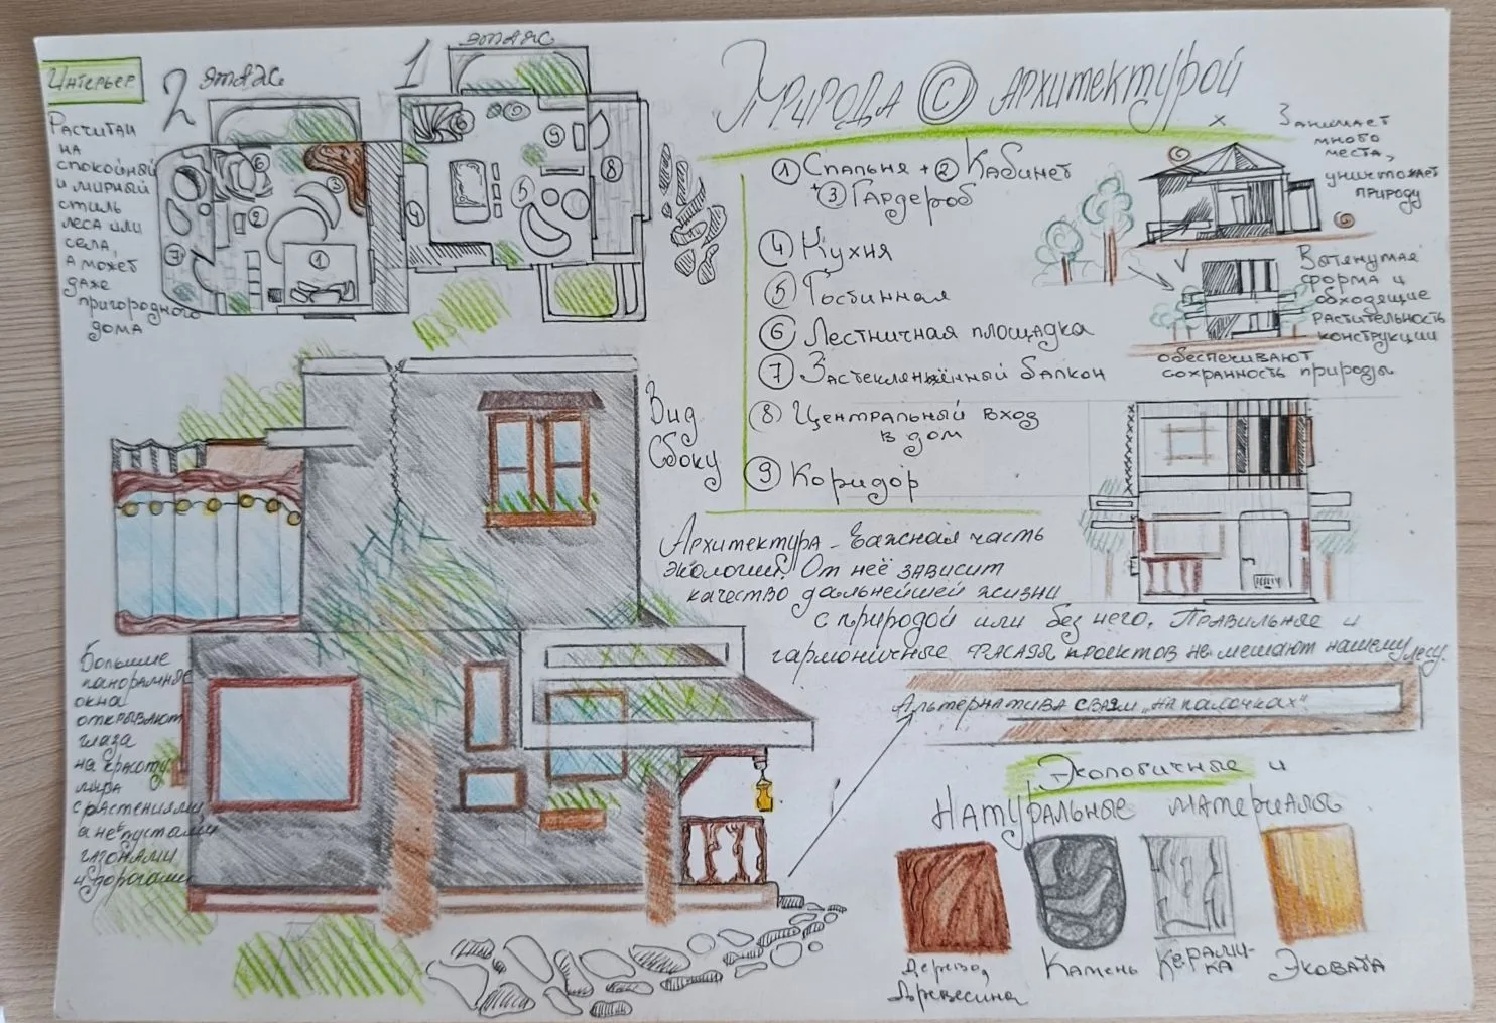 Интерьер
2 этаж
1 этаж
Расчитан
на
спокойный
и мирный
стиль
леса или
села,
а может
даже
пригородного
дома
Природа с архитектурой
① Спальня + ② Кабинет
+ ③ Гардероб
④ Кухня
⑤ Гостинная
⑥ Лестничная площадка
⑦ Застеклянённый балкон
⑧ Центральный вход
в дом
⑨ Коридор
Занимает
много
места,
уничтожает
природу
Вытянутая
форма и
обходящие
растительность
конструкции
обеспечивают
сохранность природы
Вид
Сбоку
Архитектура - важная часть
экологии. От неё зависит
качество дальнейшей жизни
с природой или без него. Правильные и
гармоничные фасады проектов не мешают нашему лесу.
Альтернатива сваям "на палочках"
Большие
панорамные
окна
открывают
глаза
на красоту
мира
с растениями
а не пустыми
газонами
и дорогами
Экологичные и
Натуральные материалы
Дерево,
Древесина
Камень
Керами-
ка
Эковата
6
3
2
7
1
6
9
8
5
4